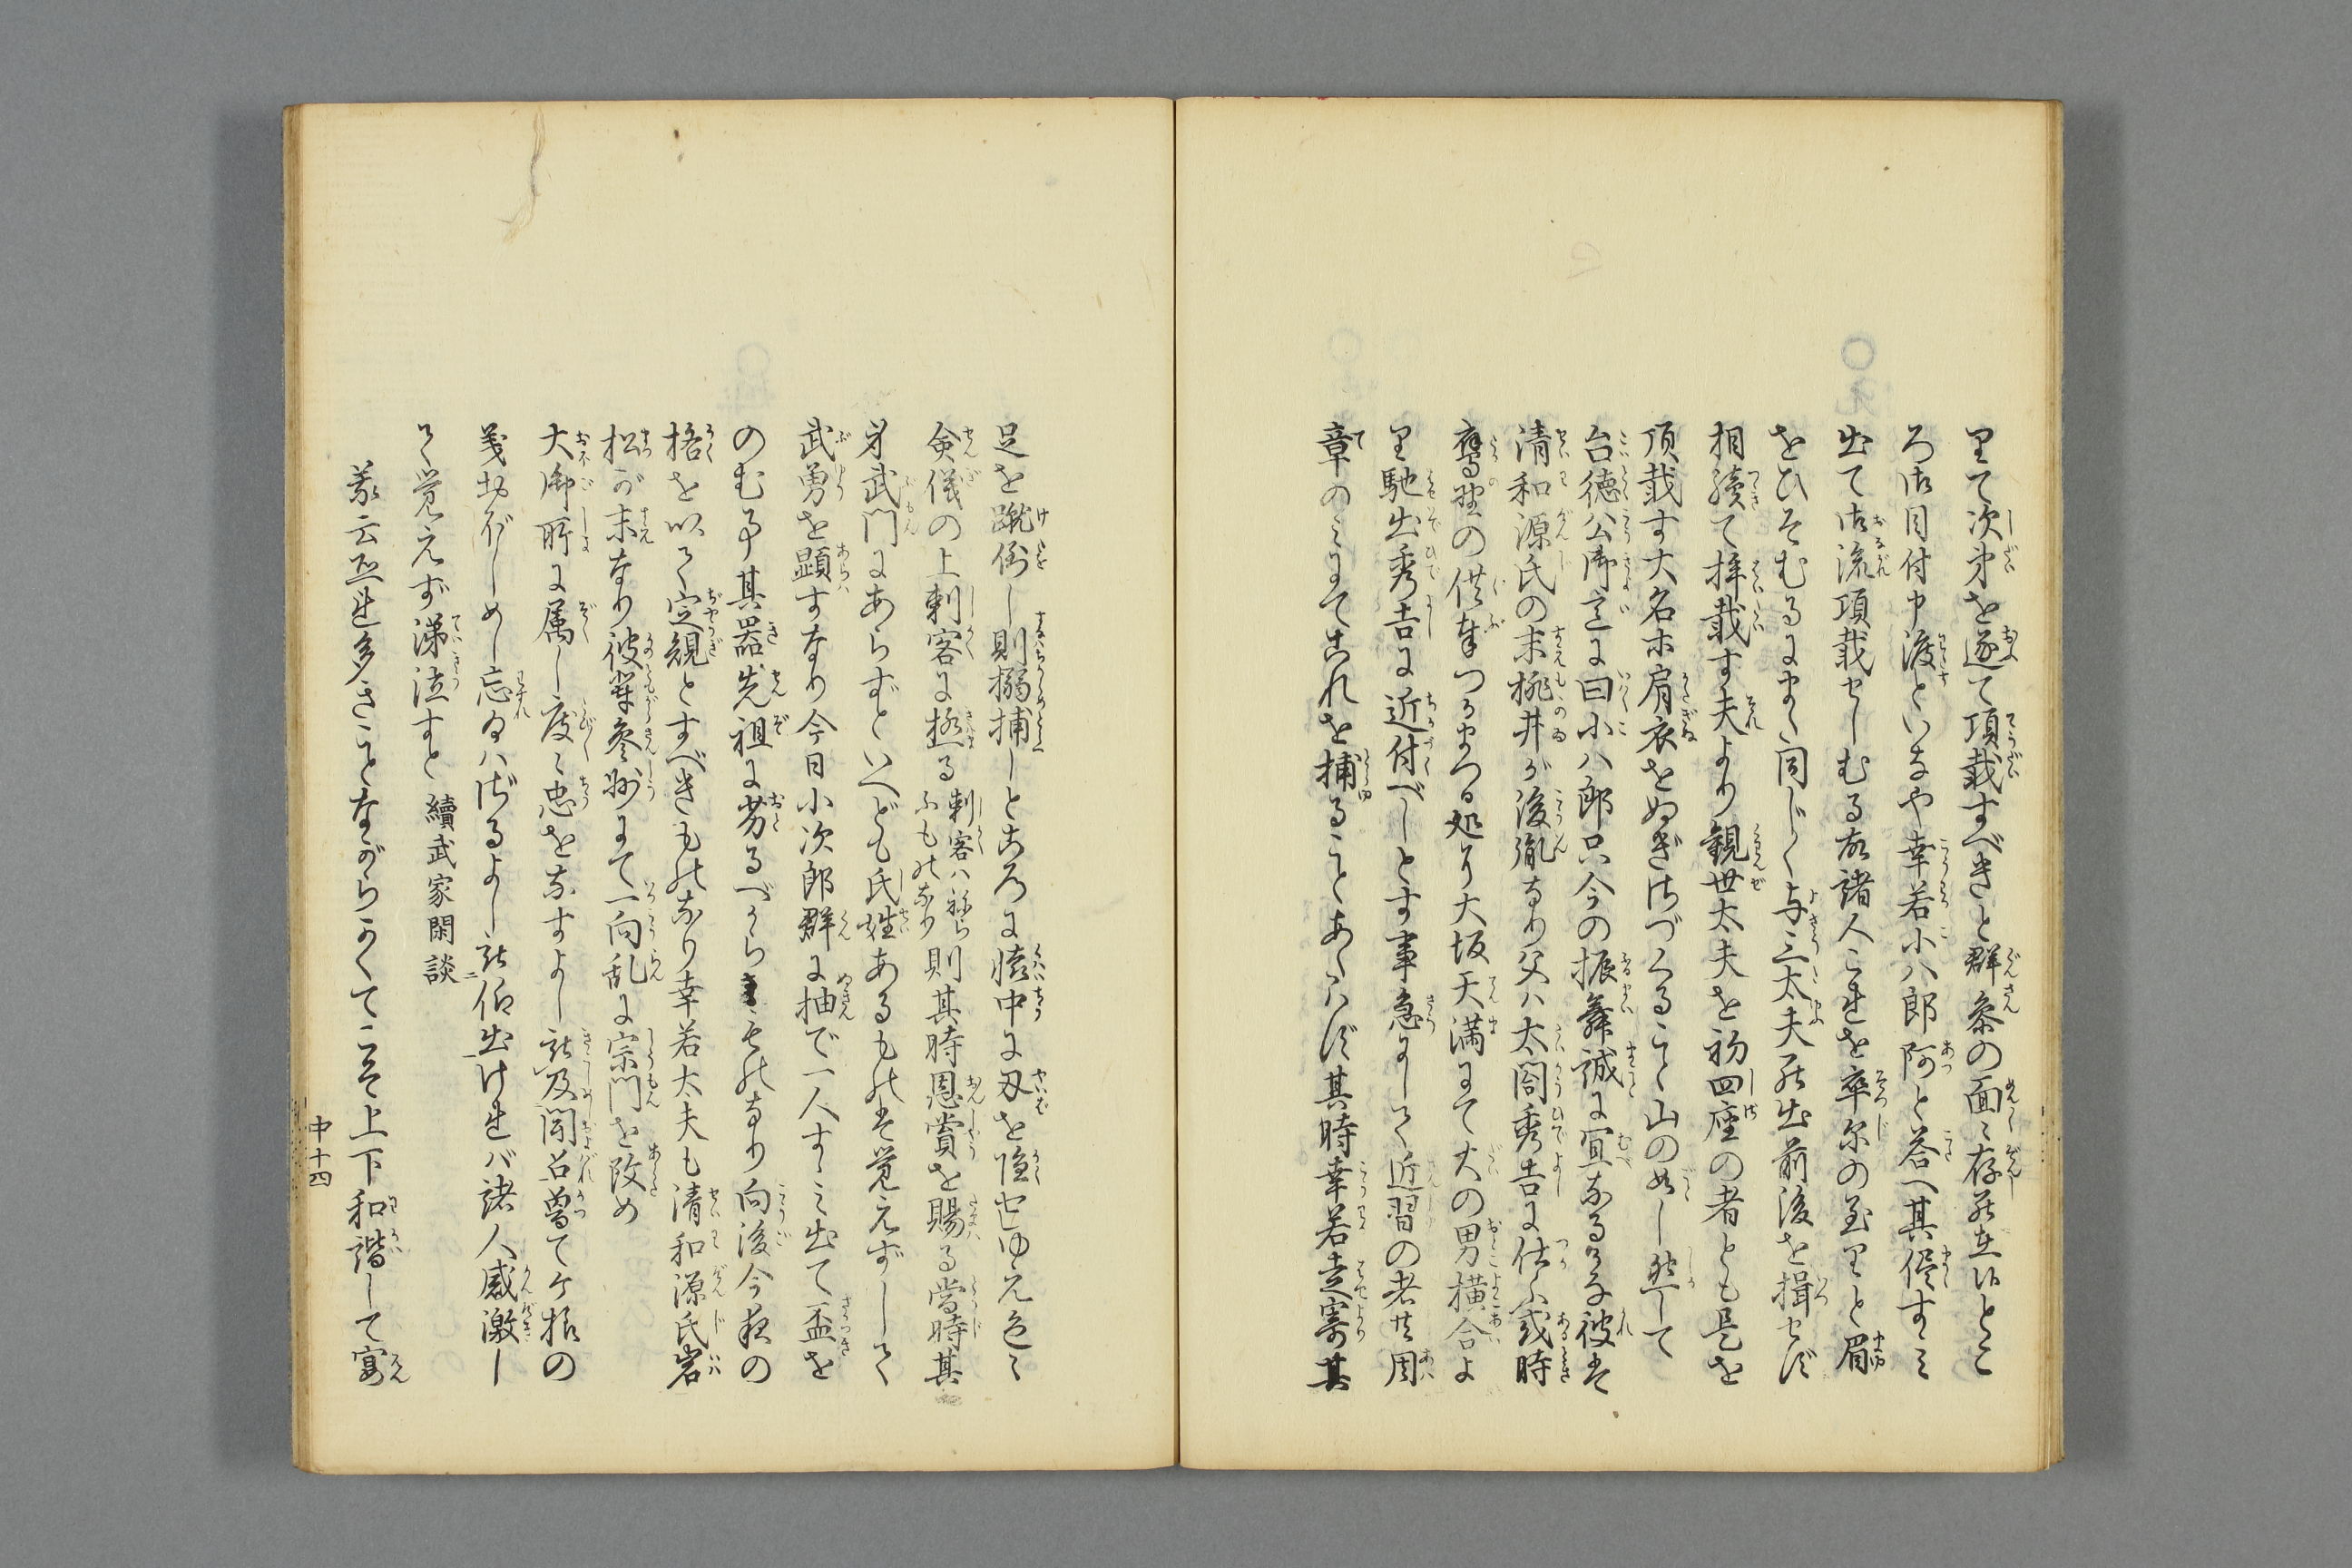 里て次第を逐て頂戴すべきと群参の面〻存罷在候とこ
ろ御目付中渡といなや幸若小八郎阿と荅へ其侭すゝミ
出て御流頂戴せしむる故諸人これを卒尓の至りと眉
をひそむるにまた同じく与三太夫罷出前後を揖せず
相續て拝戴す夫より観世太夫を初四座の者とも是を
頂戴す大名ホ肩衣をぬぎ御づくること山の如し然して
台徳公御意に曰小八郎只今の振舞誠に宜なるかな彼は
清和源氏の末桃井が後胤なり父ハ太閤秀吉に仕ふ或時
鷹野の供奉つかまつる処り大坂天満にて大の男横合よ
り馳出秀吉に近付べしとす事急にして近習の者共周
章のミにてこれを捕ることあたハず其時幸若走寄其
足を蹴倒し則搦捕しところに懐中に刄を隠せりゆへ色〻
僉儀の上刺客に極る刺客ハねらふもの也なり則其時恩賞を賜る當時其
身武門にあらずといへども氏姓あるものは覚えずして
武勇を顕すなり今日小次郎群に抽で一人すゝミ出て盃を
のむ事其器先祖に劣るべからざるものなり向後今夜の
格を以て定規とすべきものなり幸若太夫も清和源氏岩
松が末なり彼輩参州にて一向乱に宗門を改め
大御所に属し度〻忠をなすよし被及聞召曽てケ様の
義おぼしめし忘るハざるよし被仰出ければ諸人感激し
て覚えず涕泣すと 續武家閑談
義云亟連多きことながらかくてこそ上下和諧して宴
中十四